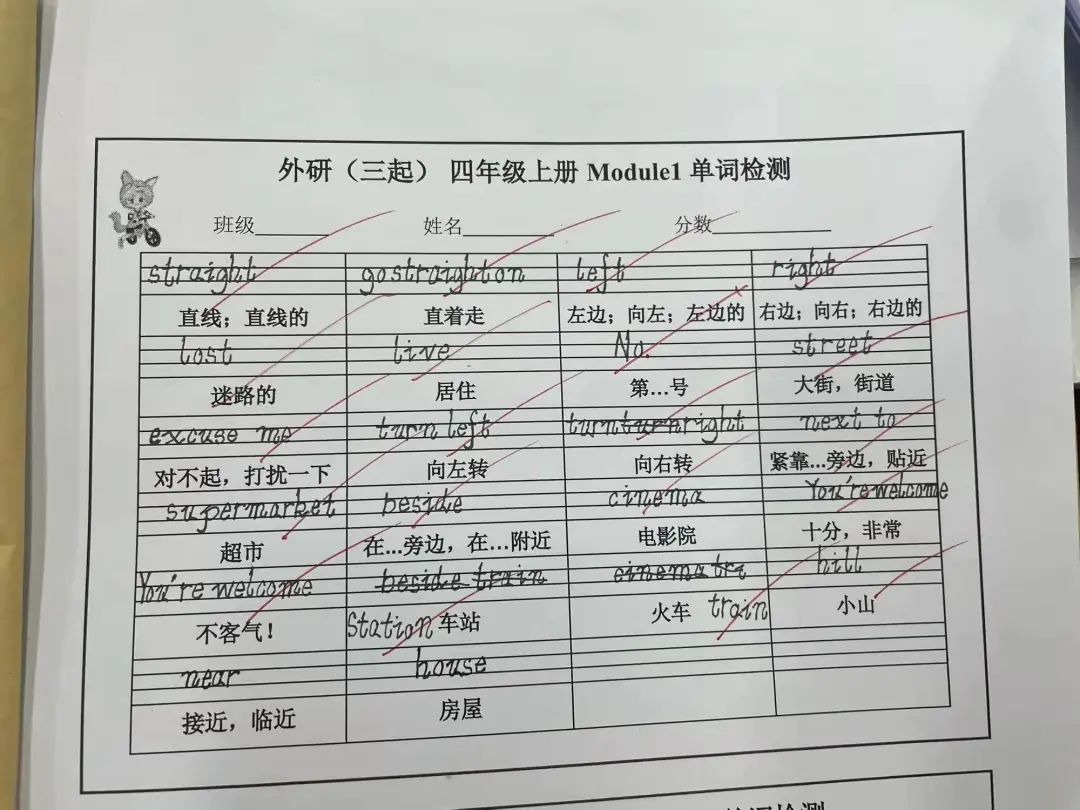 外研（三起） 四年级上册 Module1 单词检测
班级______ 姓名________ 分数__________
straight go straight on left right
直线；直线的 直着走 左边；向左；左边的 右边；向右；右边的
lost live No. street
迷路的 居住 第…号 大街，街道
excuse me turn left turn turn right next to
对不起，打扰一下 向左转 向右转 紧靠…旁边，贴近
supermarket beside cinema You're welcome
超市 在…旁边，在…附近 电影院 十分，非常
You're welcome beside train cinema tri hill
不客气！ station 车站 火车 train 小山
near house
接近，临近 房屋